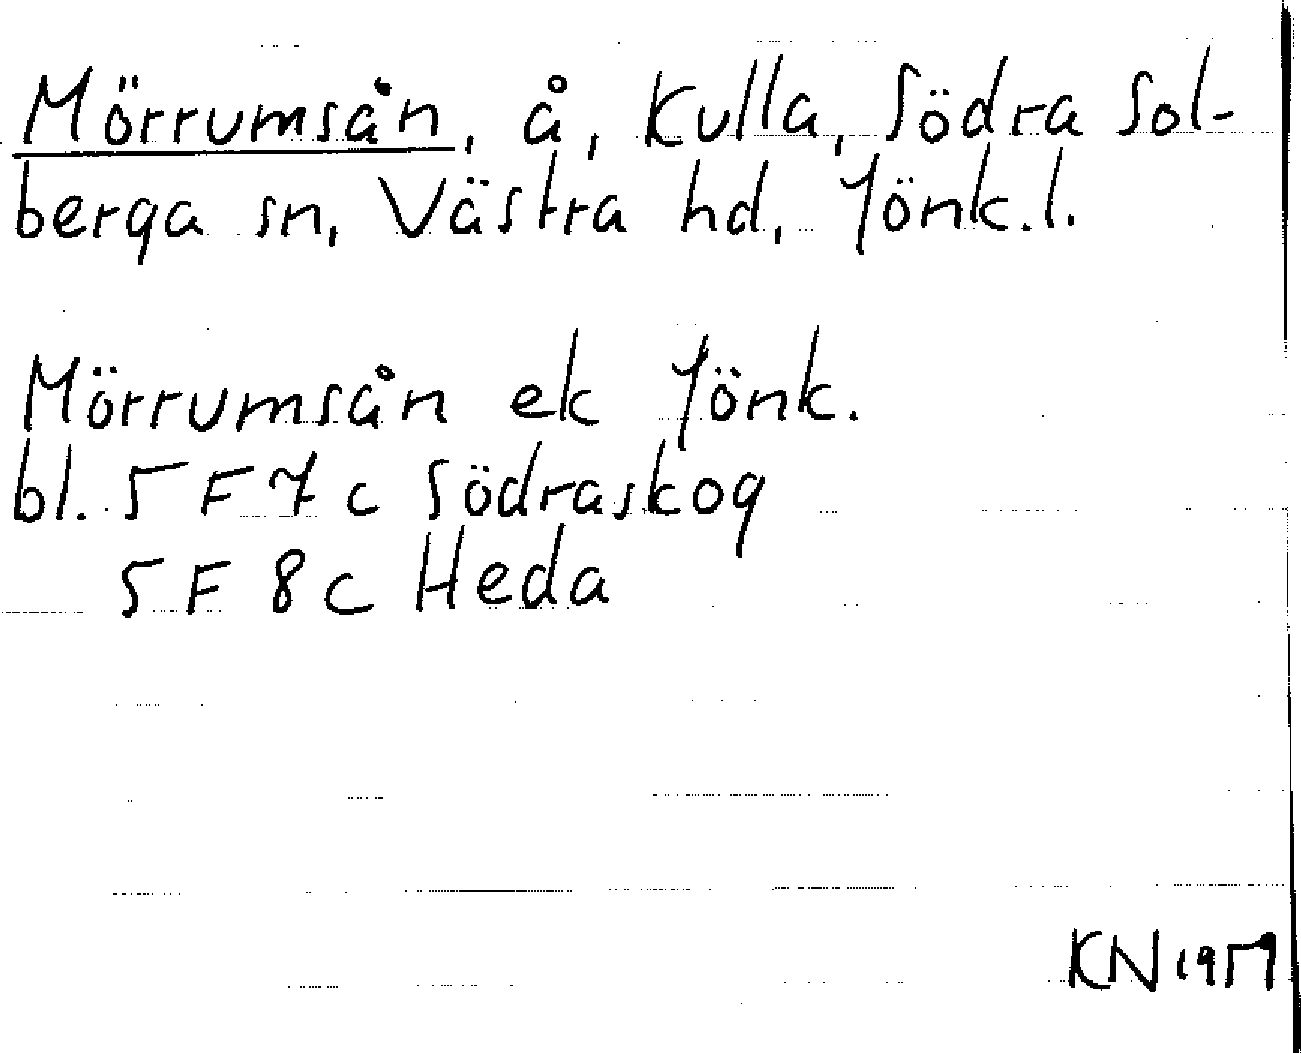 Mörrumsån, å, Kulla, Södra Sol-
berga sn, Västra hd, Jönk.l.
Mörrumsån ek Jönk.
bl. 5 F 7 c Södraskog
5 F 8 c Heda
KN